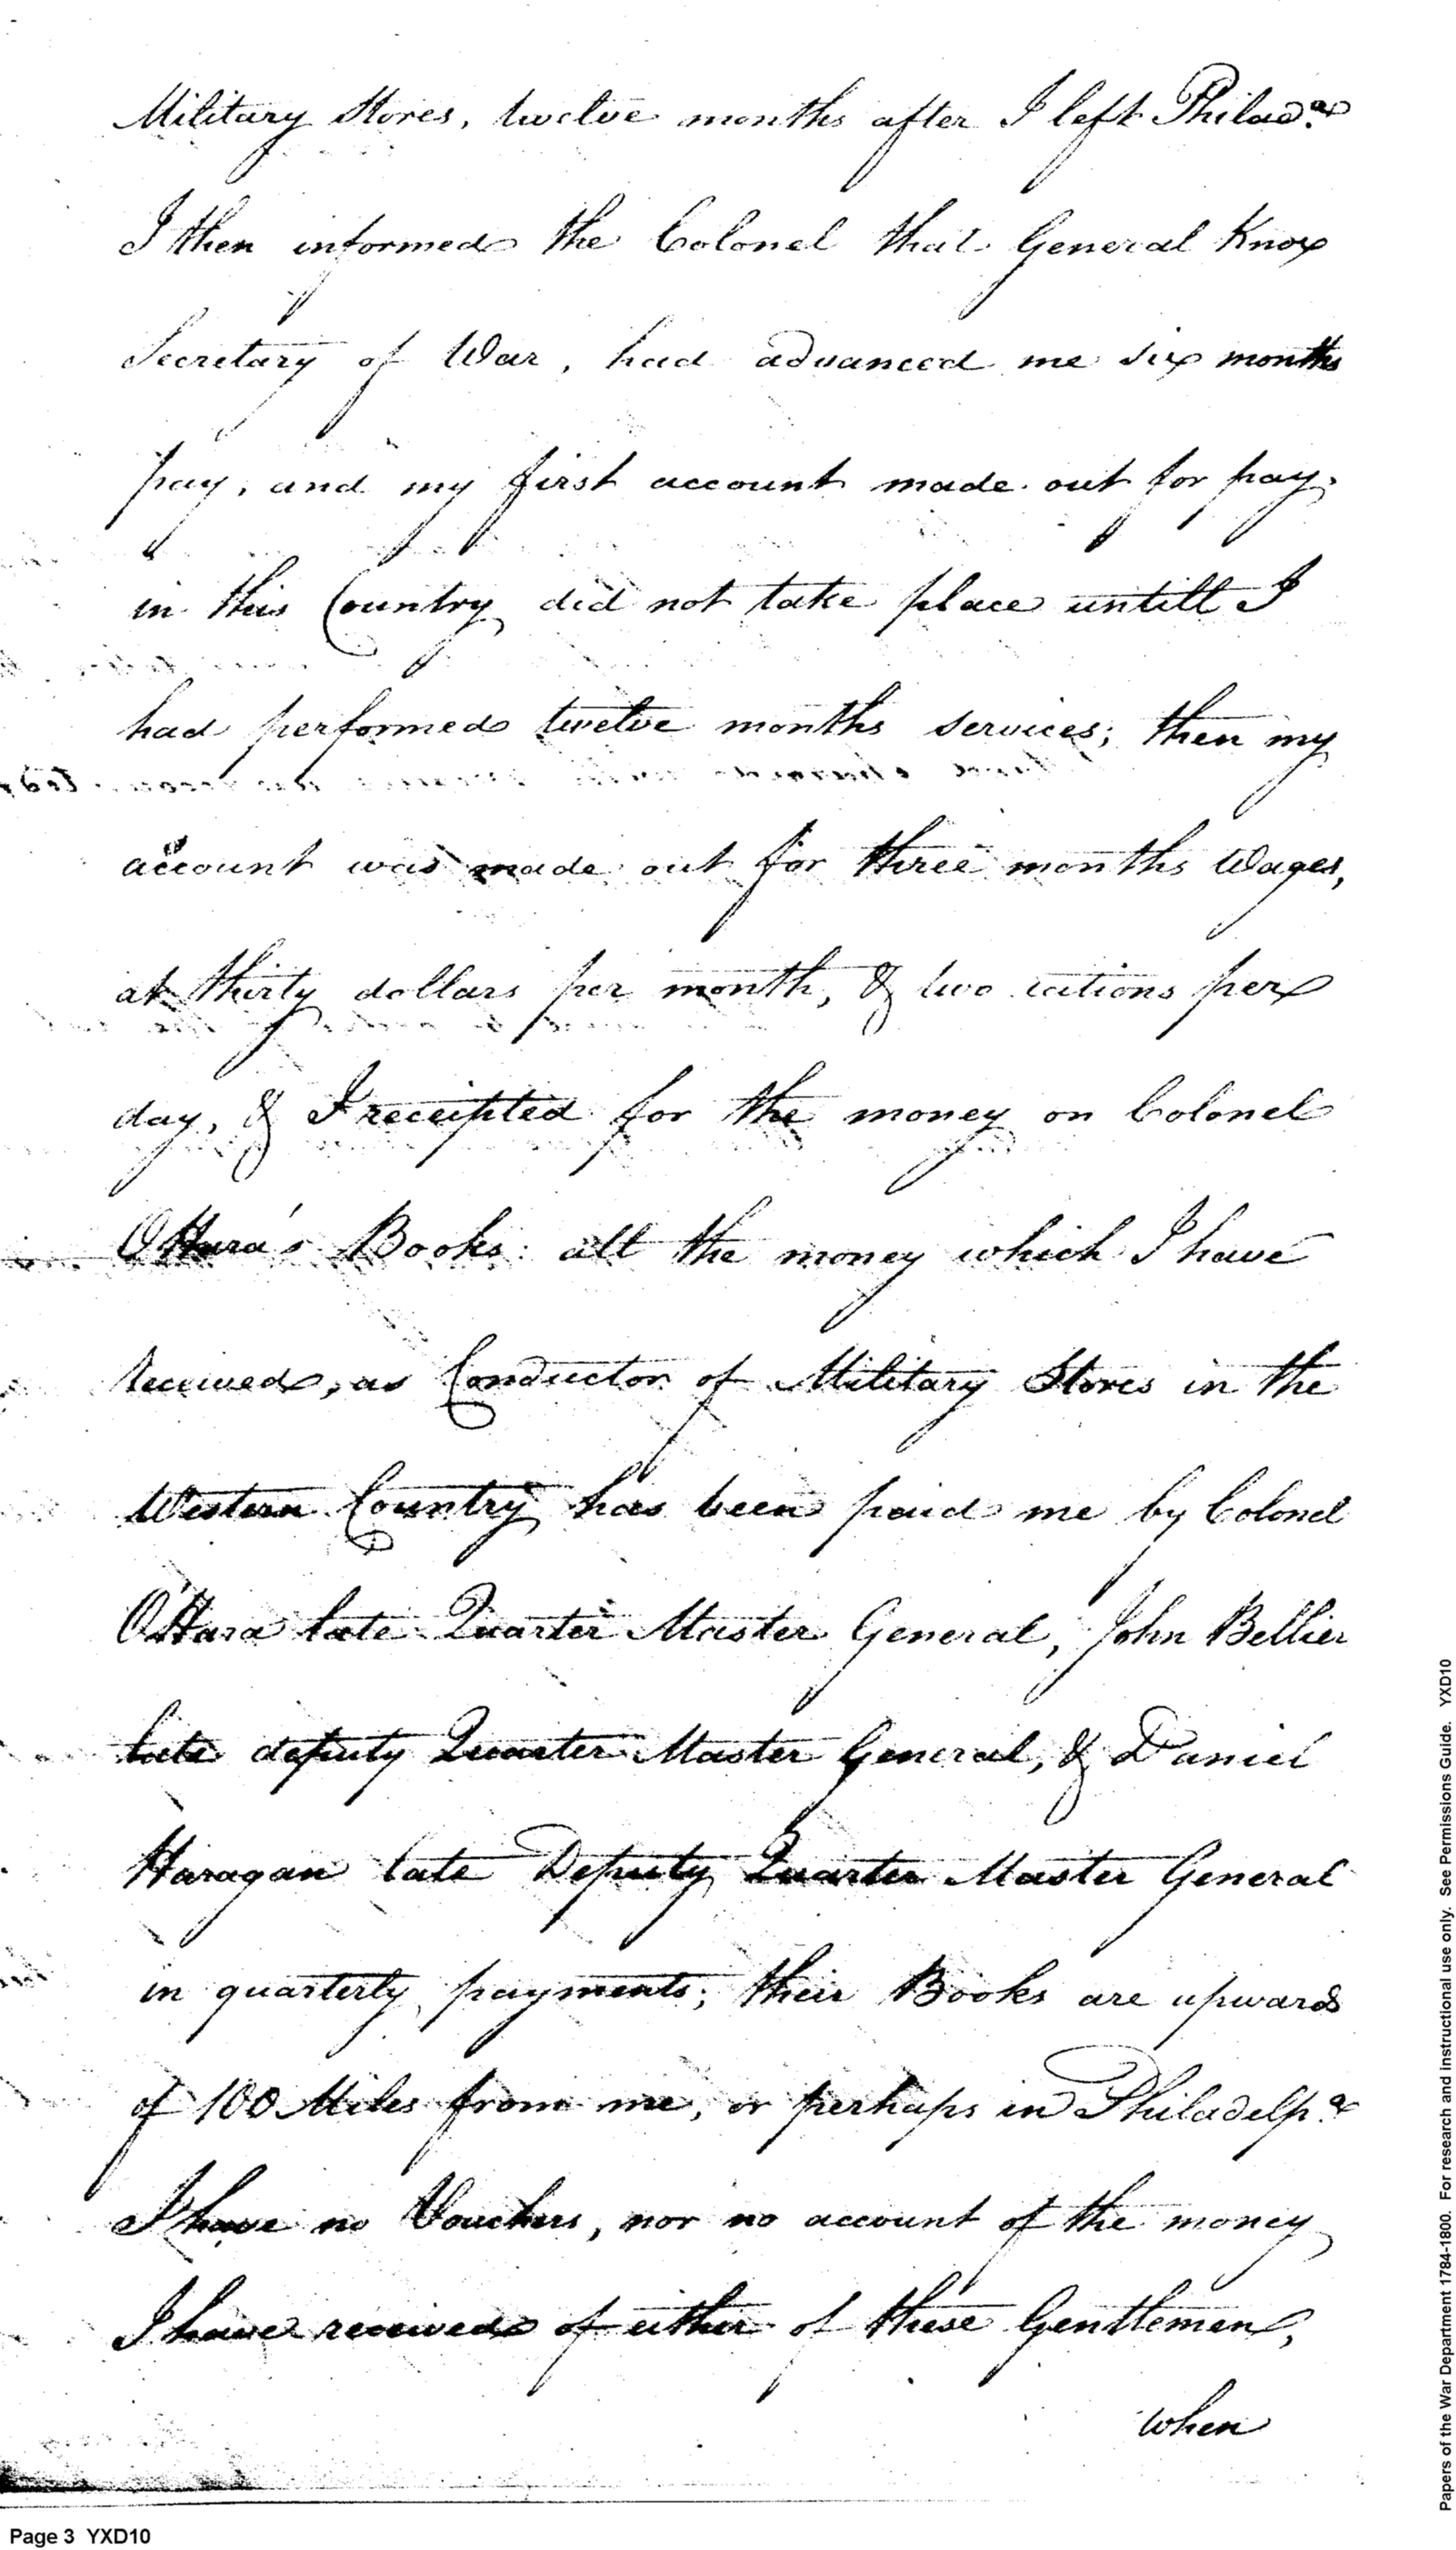 Military Stores, twelve months after I left Philada.
I then informed the Colonel that General Knox
Secretary of War, had advanced me six months
pay, and my first account made out for pay
in this Country did not take place untill I
had performed twelve months services; then my
account was made out for three months Wages,
at thirty dollars per month, & two rations per
day, & I receipted for the money on Colonel
OHara's Books: all the money which I have
received, as Conductor of Military Stores in the
Western Country has been paid me by Colonel
O'Hara late Quarter Master General, John Bellier
late deputy Quarter Master General, & Daniel
Haragan late Deputy Quarter Master General
in quarterly payments; their Books are upwards
of 100 Miles from me, or perhaps in Philadelpa
I have no Vouchers, nor no account of the money
I have received of either of these Gentlemen,
when
Page 3 YXD10
Papers of the War Department 1784-1800. For research and instructional use only. See Permissions Guide. YXD10